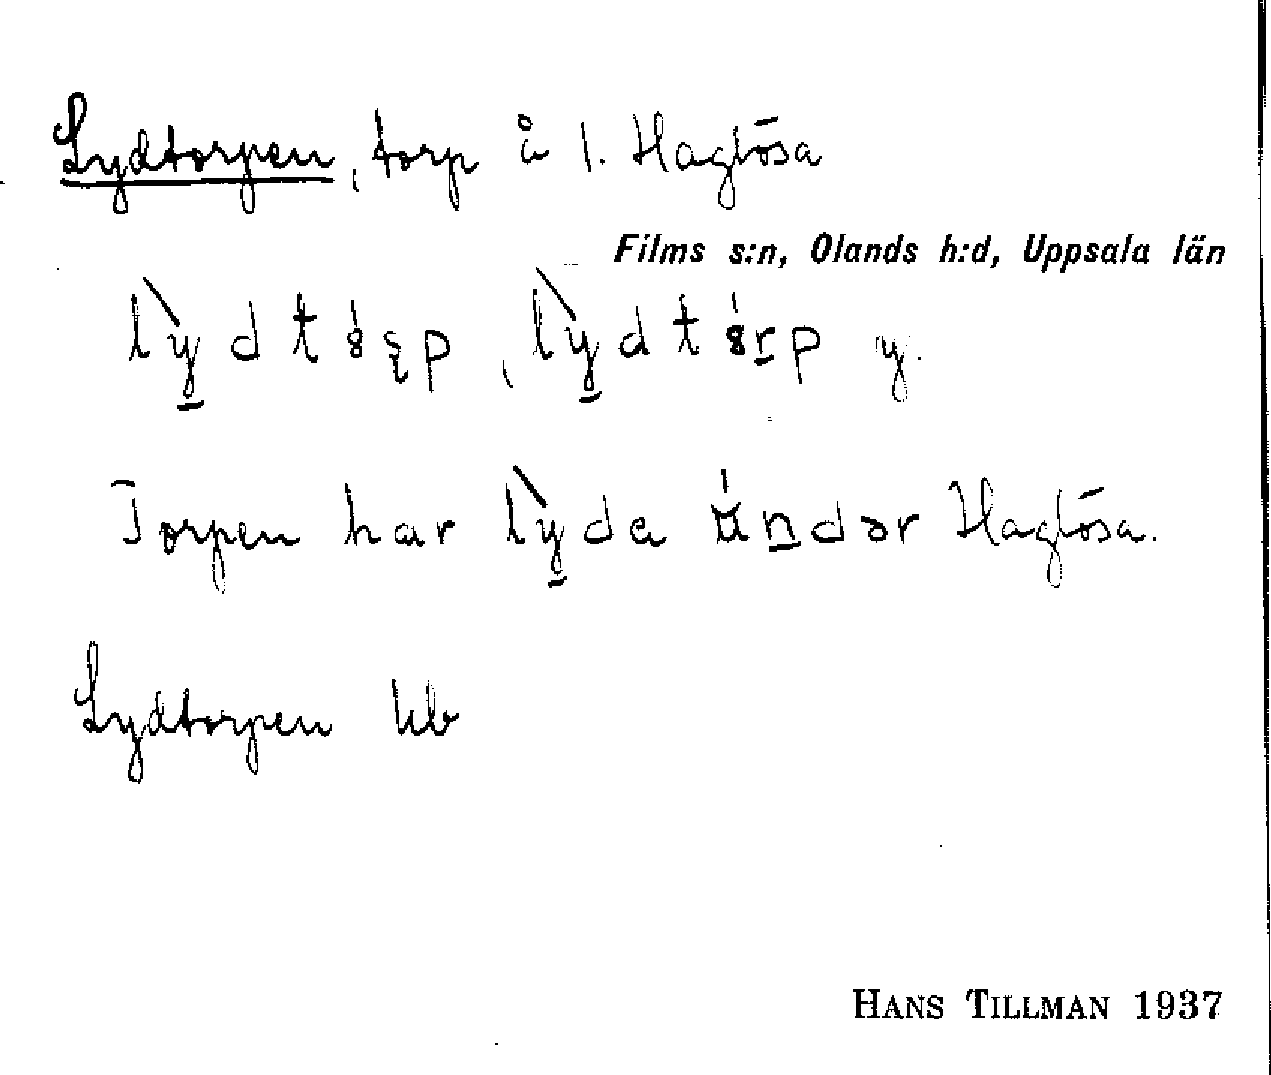 Lydtorpen, torp å l. Haglösa
Films s:n, Olands h:d, Uppsala län
lỳ̠dt
Torpen har lỳ̠da ún̠dər Haglösa.
Lydtorpen kb
HANS TILLMAN 1937